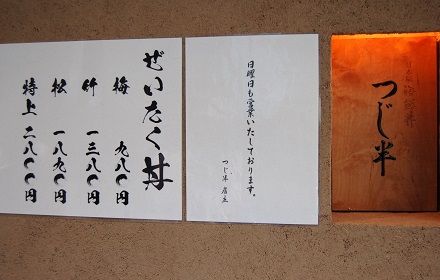 ぜいたく丼
梅 九八〇円
竹 一三八〇円
松 一八九〇円
特上 二八〇〇円
日曜日も営業いたしております。
つじ半 店主
つじ半